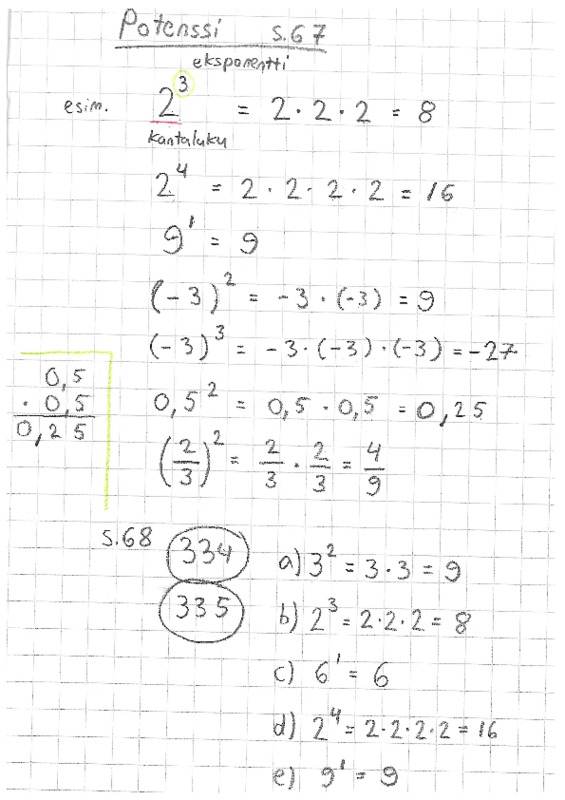 Potenssi s.67
eksponentti
esim. 2³ = 2·2·2 = 8
kantaluku
2⁴ = 2·2·2·2 = 16
9¹ = 9
(-3)² = -3·(-3) = 9
(-3)³ = -3·(-3)·(-3) = -27
0,5
· 0,5
0,25
0,5² = 0,5·0,5 = 0,25
(2/3)² = 2/3 · 2/3 = 4/9
s.68 334
335
a) 3² = 3·3 = 9
b) 2³ = 2·2·2 = 8
c) 6¹ = 6
d) 2⁴ = 2·2·2·2 = 16
e) 9¹ = 9